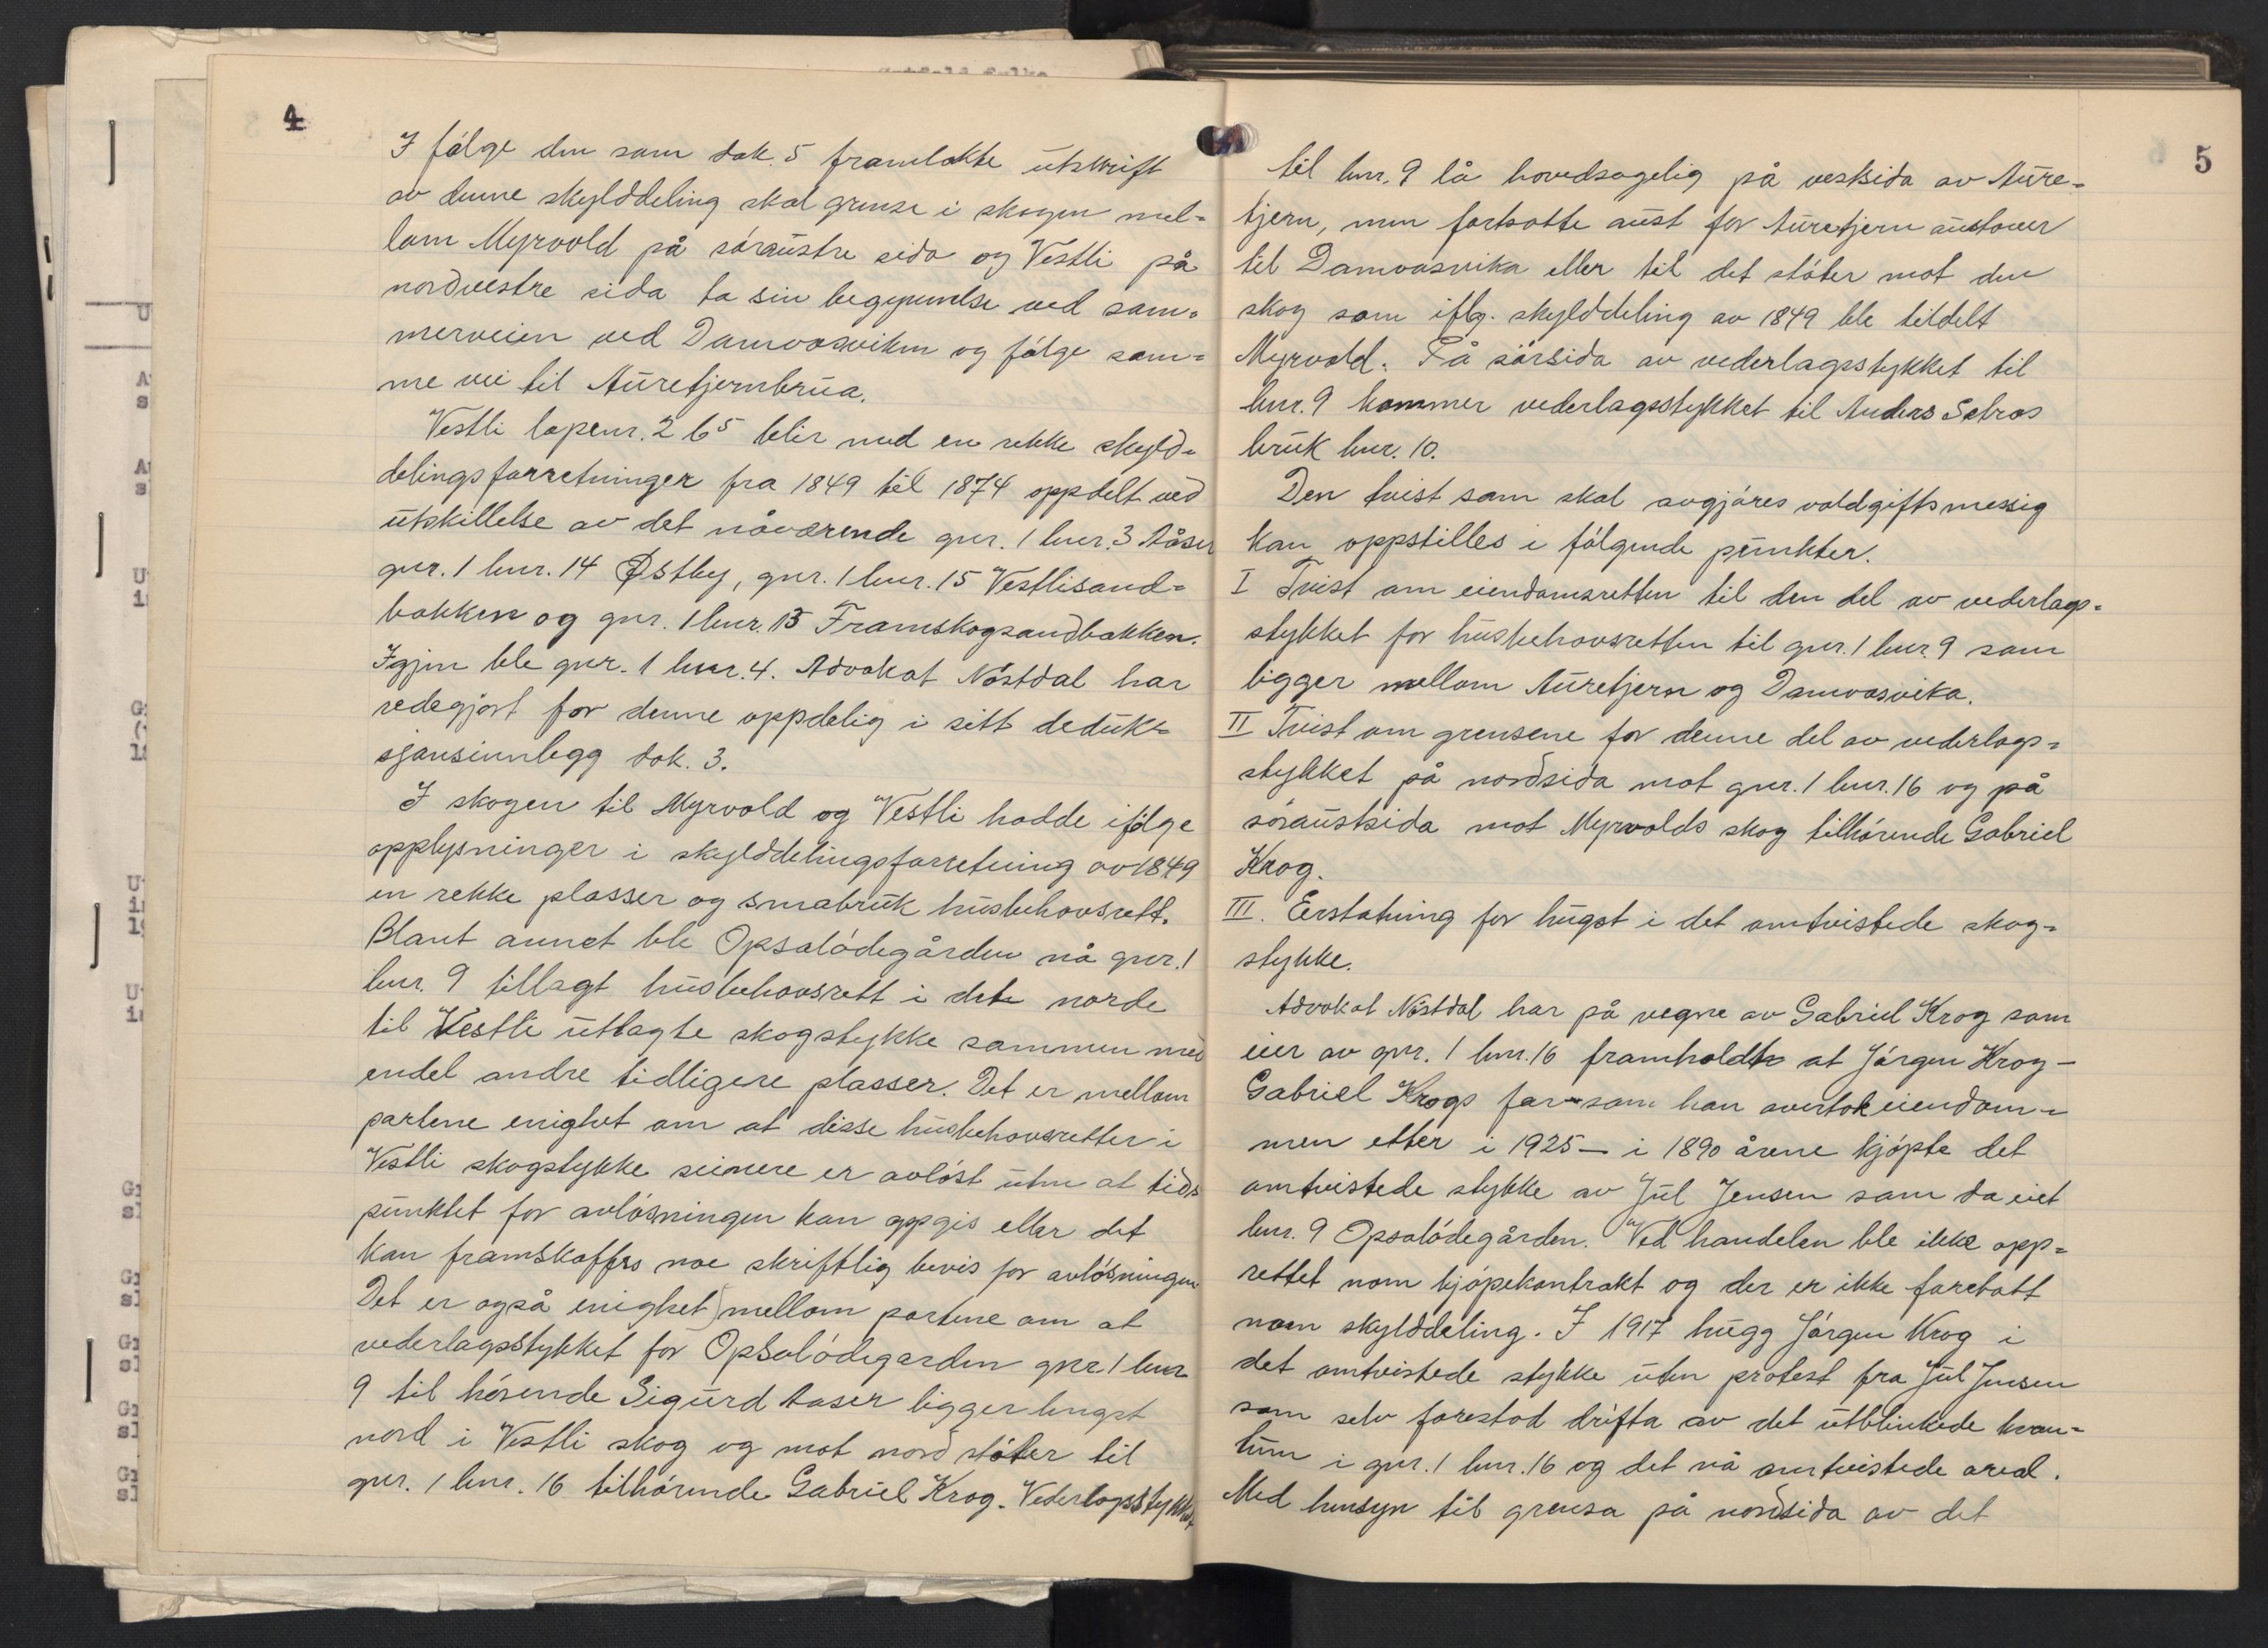 4
I følge den som dok. 5 framlakte utskrift
av denne skylddeling skal grense i skogen mel=
lom Myrvold på søraustre sida og Vestli på
nordvestre sida ta sin begynnelse ved som=
merveien ved Damvasviken og følge sam=
me vei til Auretjernbrua.
Vestli løpenr. 2 b5 blir med en rekke skyld=
delingsforretninger fra 1849 til 1874 oppdelt ved
utskillelse av det nåværende gnr. 1 bnr. 3 Åser
gnr. 1 bnr. 14 Østby, gnr. 1 bnr. 15 Vestlisand=
bakken og gnr. 1 bnr. 13 Framskogsandbakken.
Igjen ble gnr. 1 bnr. 4. Advokat Nøstdal har
redegjort for denne oppdelig i sitt deduk=
sjonsinnlegg dok. 3.
I skogen til Myrvold og Vestli hadde ifølge
opplysninger i skylddelingsforretning av 1849
en rekke plasser og småbruk husbehovsrett.
Blant annet ble Opsalødegården nå gnr. 1
bnr. 9 tillagt husbehovsrett i dete norde
til Vestli utlagte skogstykke sammen med
endel andre tidligere plasser. Det er mellom
partene enighet om at disse husbehovsretter i
Vestli skogstykke seinere er avløst uten at tids
punktet for avløsningen kan oppgis eller det
kan framskaffes noe skriftlig bevis for avløsningen
Det er også enighet mellom partene om at
vederlagsstykket for Opsalødegarden gnr. 1 bnr.
9 til hørende Sigurd Aaser ligger lengst
nord i Vestli skog og mot nord støter til
gnr. 1 bnr. 16 tilhørende Gabriel Krog. Vederlagsstykket
5
til bnr. 9 lå hovedsagelig på vestsida av Aure=
tjern, men fortsatte aust for Auretjern austover
til Damvasvika eller til det støter mot den
skog som iflg. skylddeling av 1849 ble tildelt
Myrvold. På sørsida av vederlagsstykket til
bnr. 9 kommer vederlagsstykket til Anders Sebros
bruk bnr. 10.
Den tvist som skal avgjøres voldgiftsmessig
kan oppstilles i følgende punkter.
I Tvist om eiendomsretten til den del av vederlags=
stykket for husbehovsretten til gnr. 1 bnr. 9 som
ligger mellom Auretjern og Damvasvika.
II Tvist om grensene for denne del av vederlags=
stykket på nordsida mot gnr. 1 bnr. 16 og på
søraustsida mot Myrvolds skog tilhørende Gabriel
Krog.
III. Eerstatning for hugst i det omtvistede skog=
stykke.
Advokat Nøstdal har på vegne av Gabriel Krog som
eier av gnr. 1 bnr. 16 framholdt at Jørgen Krog —
Gabriel Krogs far — som han overtok eiendom=
men etter i 1925 — i 1890 årene kjøpte det
omtvistede stykke av Jul Jensen som da eiet
bnr. 9 Opsalødegården. Ved handelen ble ikke opp=
rettet noen kjøpekontrakt og der er ikke foretatt
noen skylddeling. I 1917 hugg Jørgen Krog i
det omtvistede stykke uten protest fra Jul Jensen
som selv forestod drifta av det utblinkede kvan=
tum i gnr. 1 bnr. 16 og det nå omtvistede areal.
Med hensyn til grensa på nordsida av det